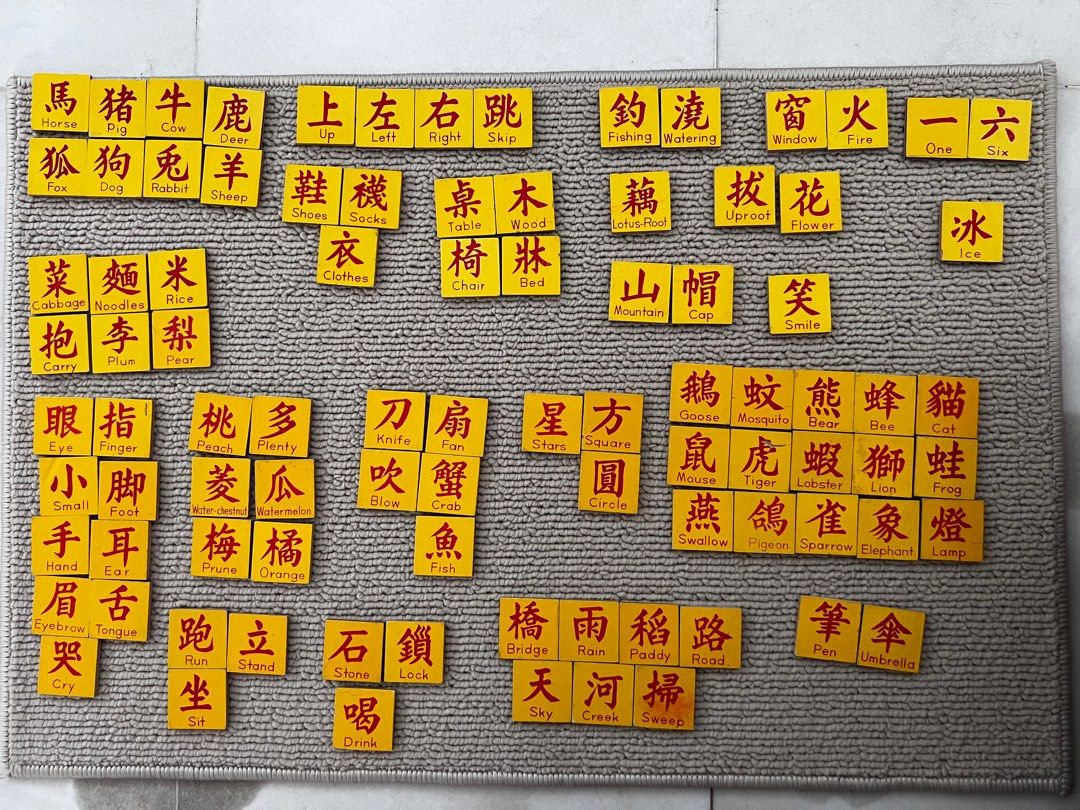 馬 猪 牛 鹿
Horse Pig Cow Deer
狐 狗 兔 羊
Fox Dog Rabbit Sheep
上 左 右 跳
Up Left Right Skip
釣 澆
Fishing Watering
窗 火
Window Fire
一 六
One Six
鞋 襪
Shoes Socks
衣
Clothes
桌 木
Table Wood
椅 牀
Chair Bed
藕
Lotus-Root
拔 花
Uproot Flower
冰
Ice
山 帽
Mountain Cap
笑
Smile
菜 麵 米
Cabbage Noodles Rice
抱 李 梨
Carry Plum Pear
眼 指
Eye Finger
小 脚
Small Foot
手 耳
Hand Ear
眉 舌
Eyebrow Tongue
哭
Cry
桃 多
Peach Plenty
菱 瓜
Water-chestnut Watermelon
梅 橘
Prune Orange
刀 扇
Knife Fan
吹 蟹
Blow Crab
魚
Fish
星 方
Stars Square
圓
Circle
鵝 蚊 熊 蜂 貓
Goose Mosquito Bear Bee Cat
鼠 虎 蝦 獅 蛙
Mouse Tiger Lobster Lion Frog
燕 鴿 雀 象 燈
Swallow Pigeon Sparrow Elephant Lamp
跑 立
Run Stand
坐
Sit
石 鎖
Stone Lock
喝
Drink
橋 雨 稻 路
Bridge Rain Paddy Road
天 河 掃
Sky Creek Sweep
筆 傘
Pen Umbrella